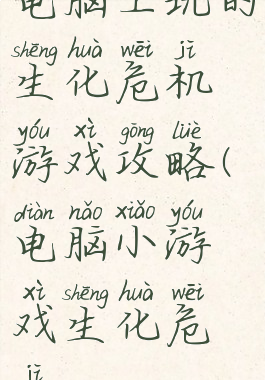 电脑上玩的
shēng huà wēi jī
生化危机
yóu xì gōng lüè
游戏攻略(
diàn nǎo xiǎo yóu
电脑小游
xì shēng huà wēi
戏生化危
jī